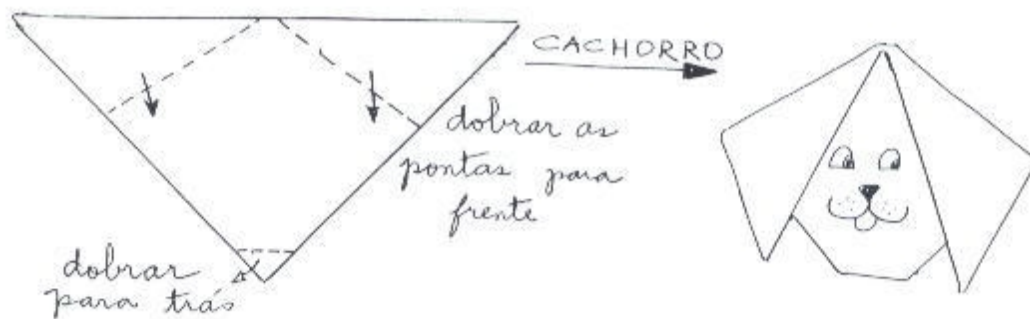 CACHORRO
dobrar as
pontas para
frente
dobrar
para trás